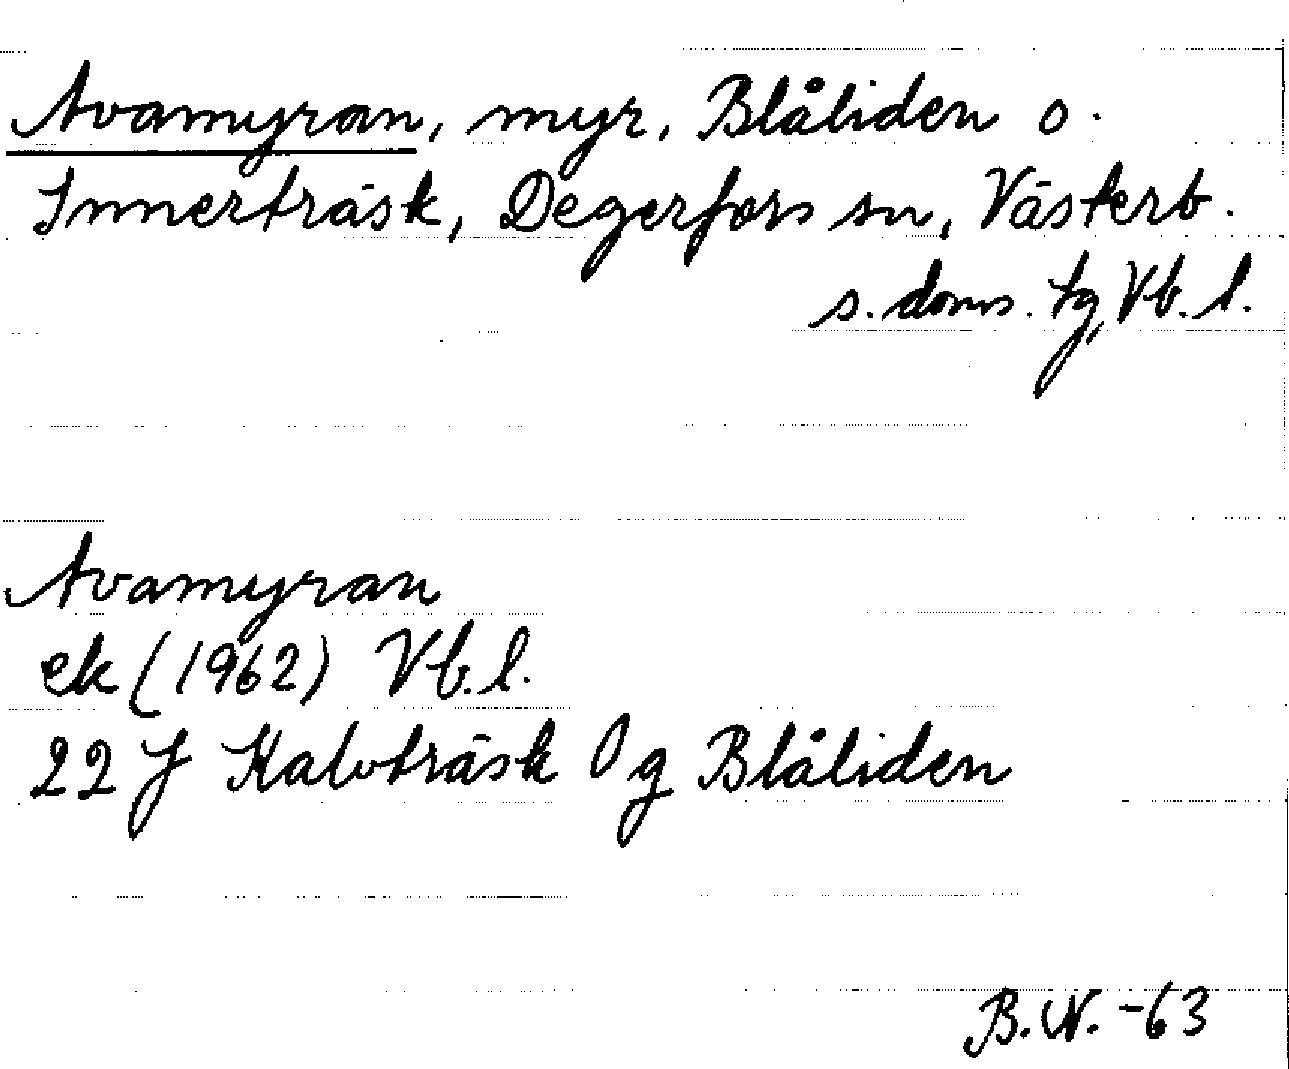 Avamyran, myr, Blåliden o.
Innerträsk, Degerfors sn, Västerb.
s. doms. tg, Vb. l.
Avamyran
ek (1962) Vb. l.
22 J Kalvträsk 0 g Blåliden
B. N. -63